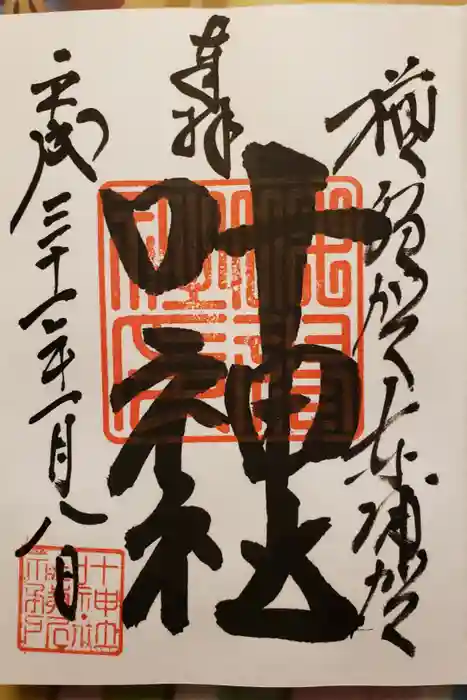 横須賀東浦賀
奉拝
叶神社
平成三十一年一月八日